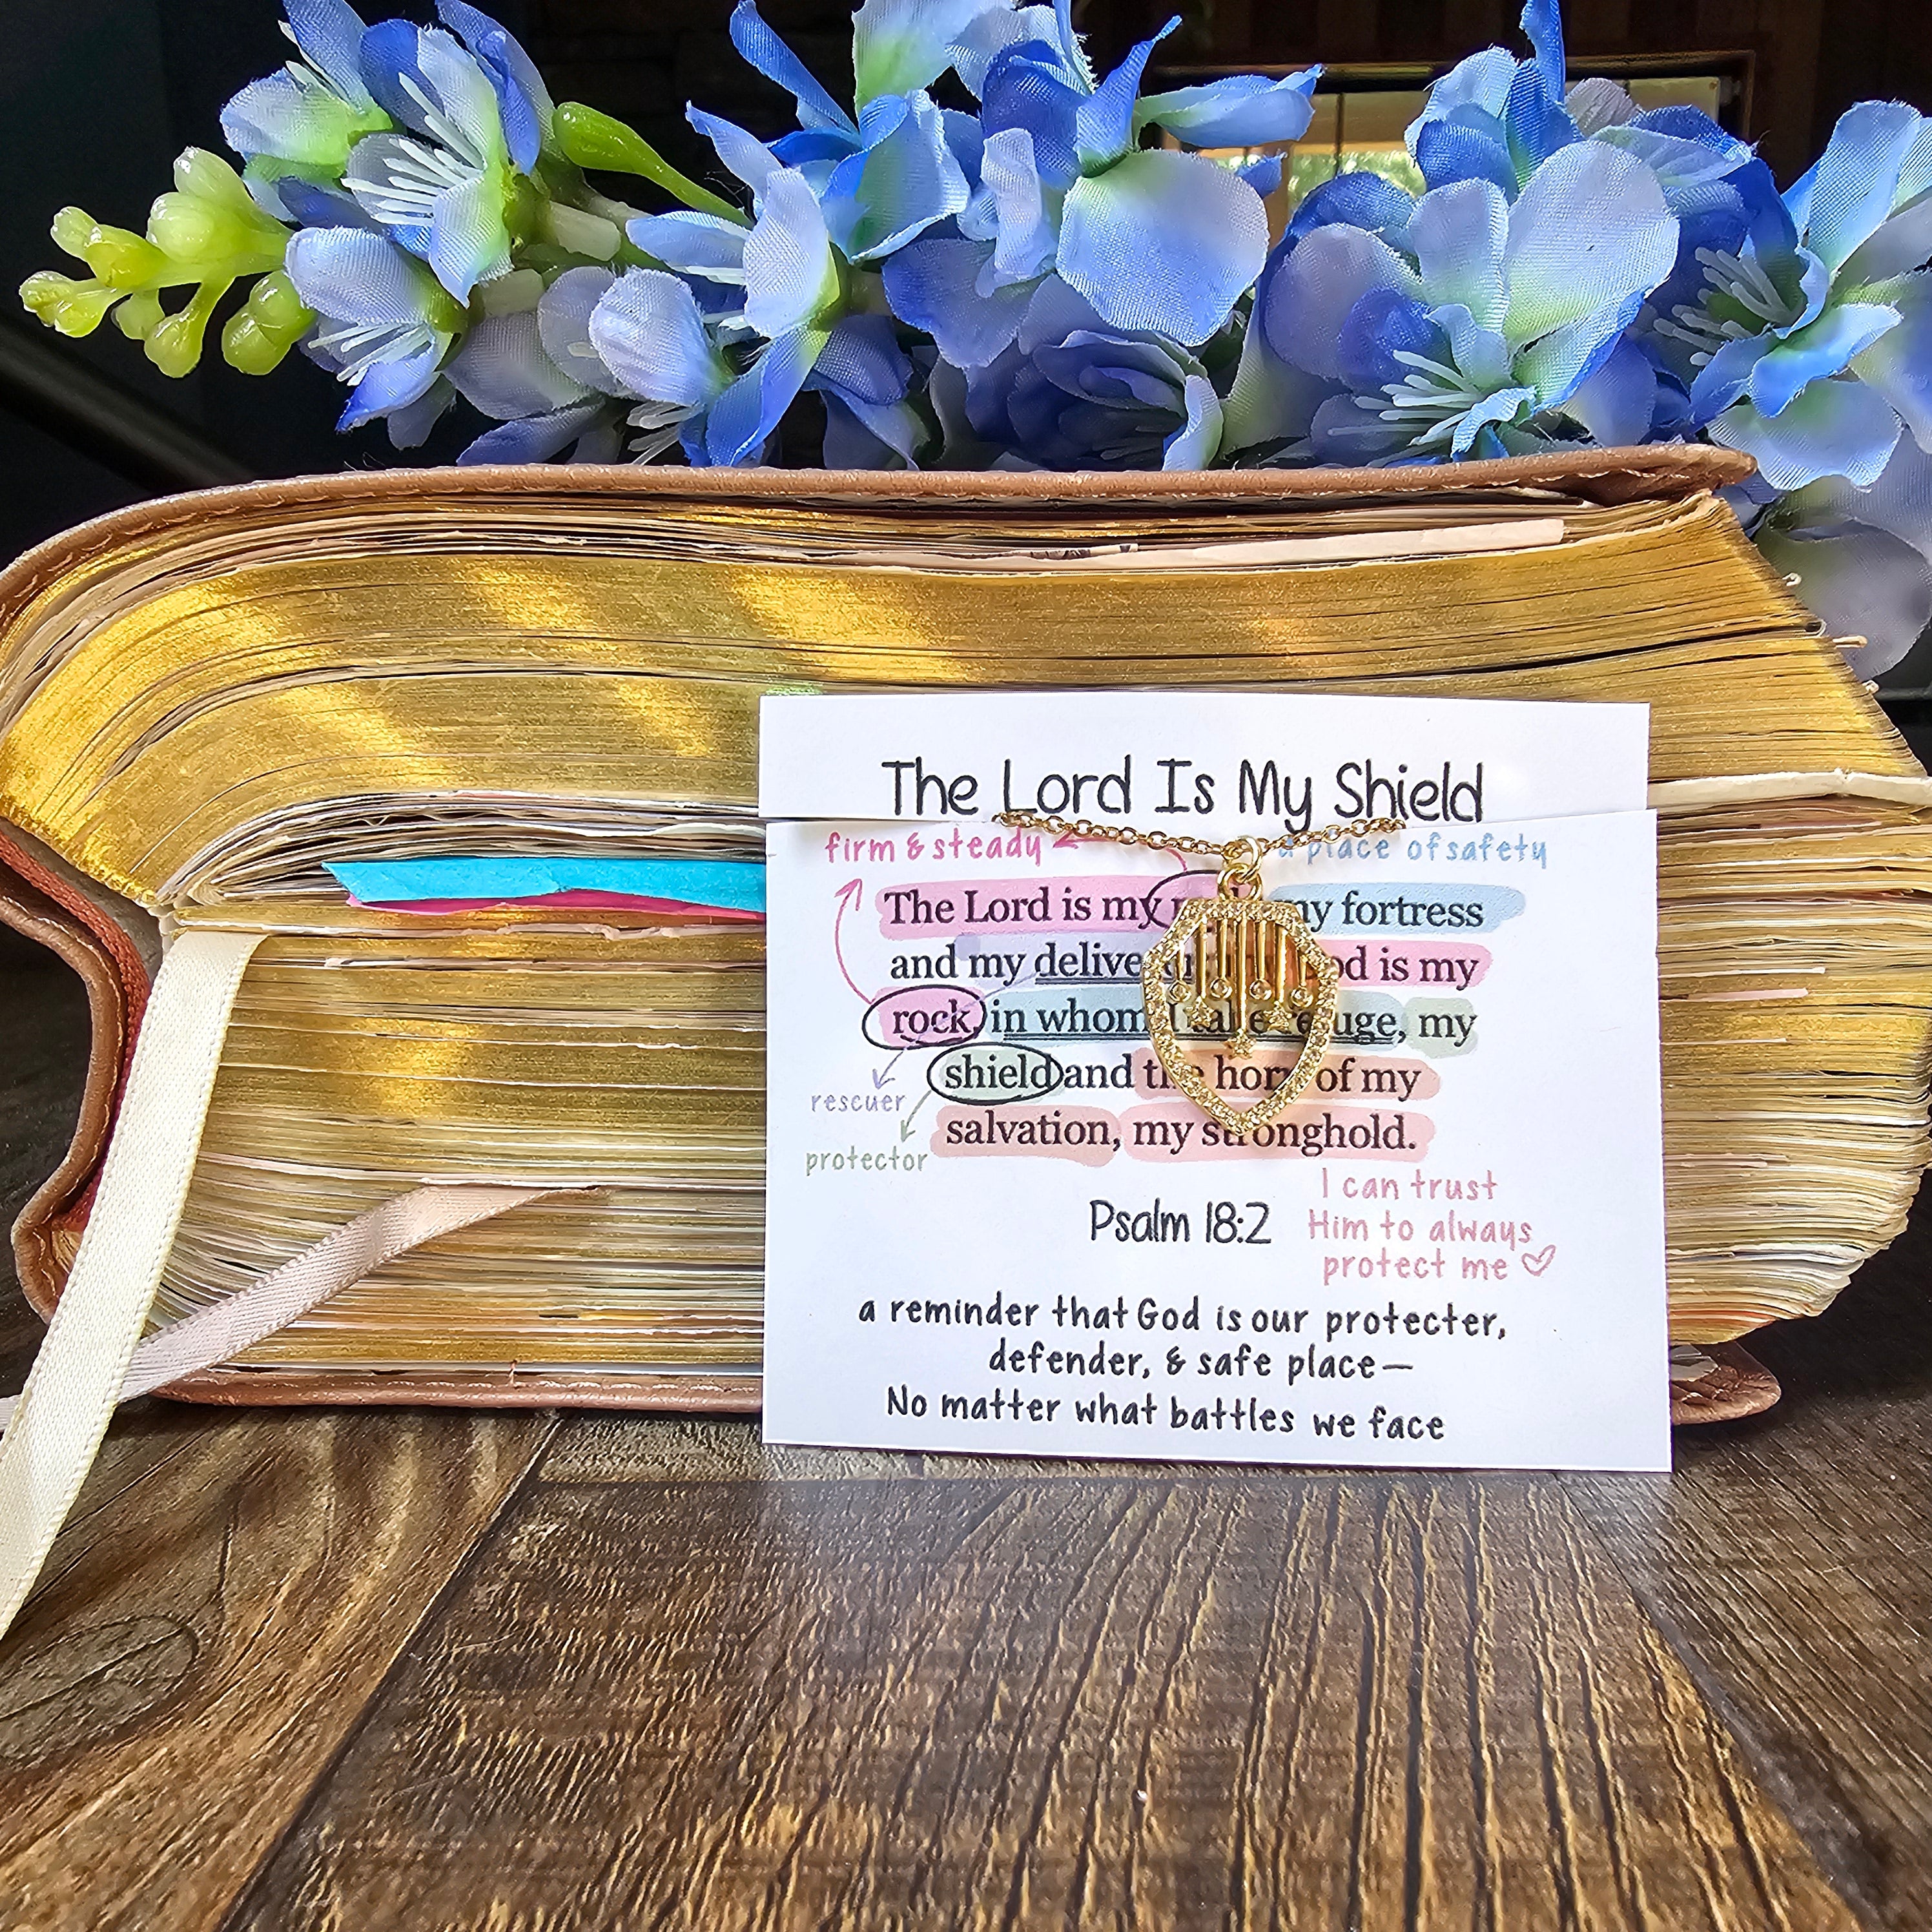 The Lord Is My Shield
firm & steady
a place of safety
The Lord is my my fortress
and my is my
rock, in whom I take refuge, my
shield and the horn of my
rescuer
salvation, my stronghold.
protector
I can trust
Psalm 18:2 Him to always
protect me
a reminder that God is our protecter,
defender, & safe place—
No matter what battles we face